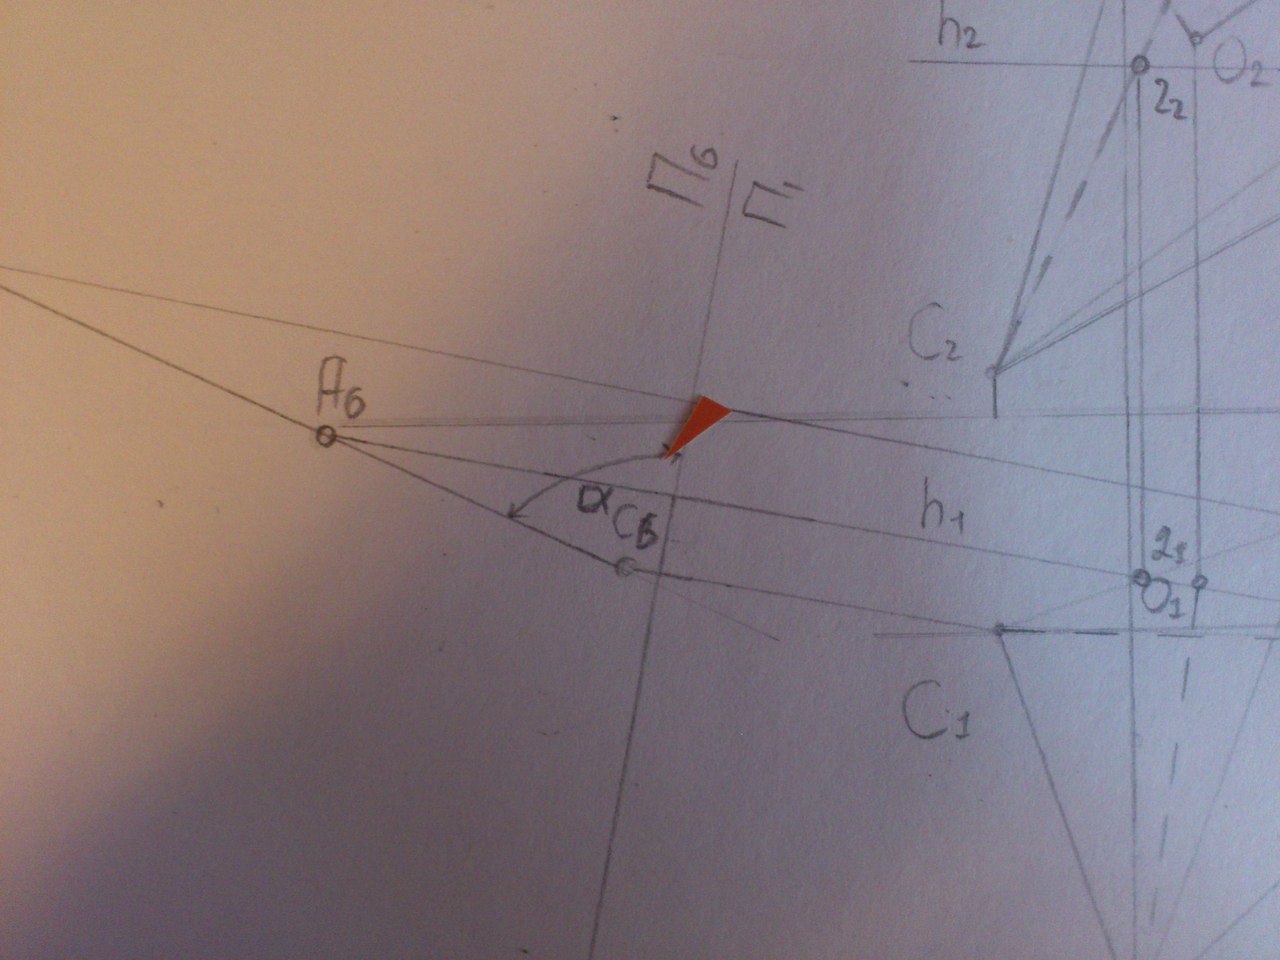 h₂
O₂
2₂
П₆ П₁
C₂
A₆
h₁
α
C₆
2₁
O₁
C₁